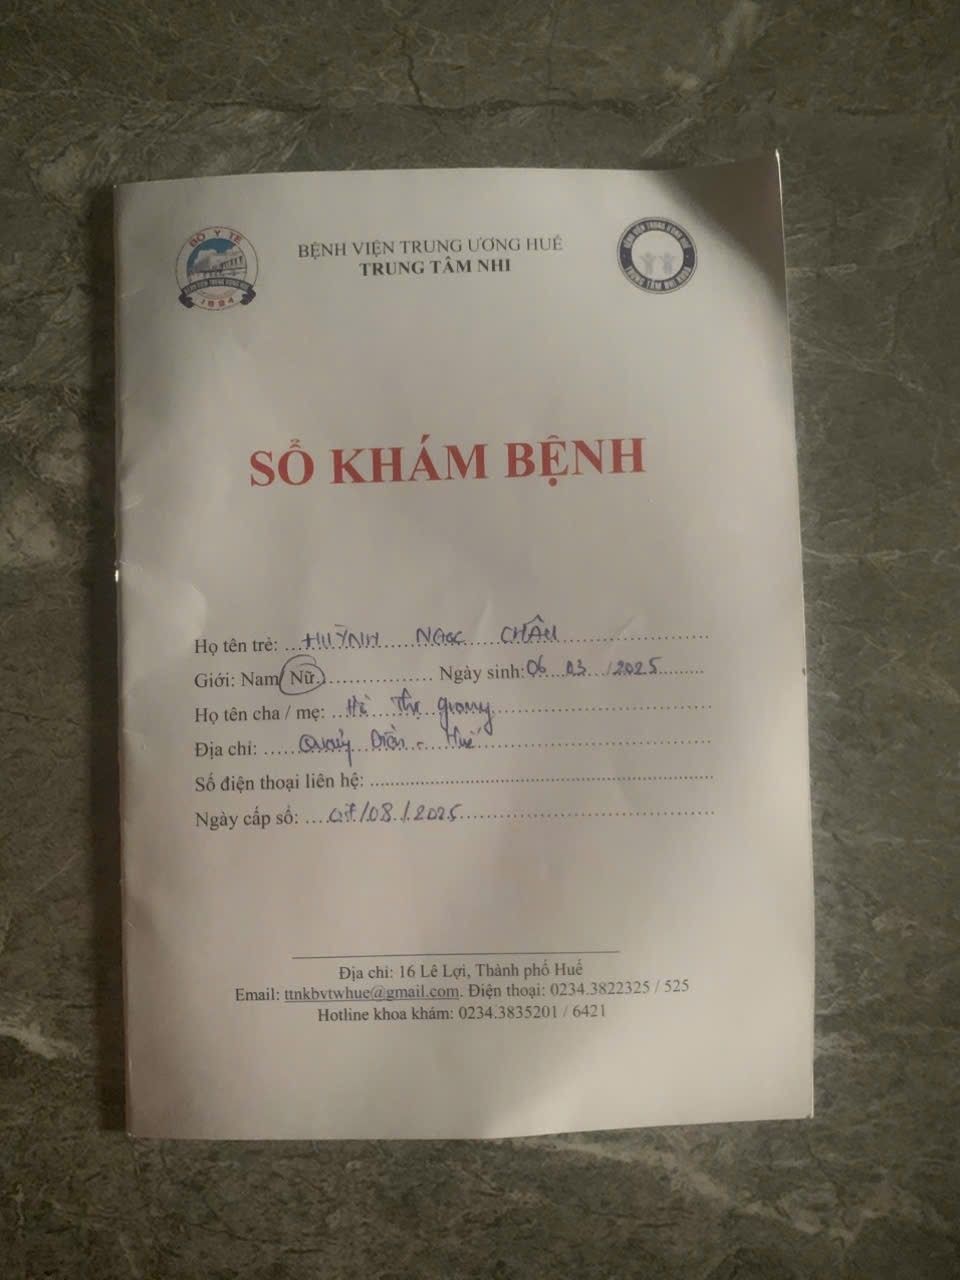 BỘ Y TẾ
BỆNH VIỆN TRUNG ƯƠNG HUẾ
1894
BỆNH VIỆN TRUNG ƯƠNG HUẾ
TRUNG TÂM NHI
BỆNH VIỆN TRUNG ƯƠNG HUẾ
TRUNG TÂM NHI KHOA
SỔ KHÁM BỆNH
Họ tên trẻ: HUỲNH NGỌC CHÂU
Giới: Nam/ Nữ Ngày sinh: 06 03 /2025
Họ tên cha / mẹ: Thị
Địa chỉ: Huế
Số điện thoại liên hệ:
Ngày cấp sổ: /08/2025
Địa chỉ: 16 Lê Lợi, Thành phố Huế
Email: ttnkbvtwhue@gmail.com. Điện thoại: 0234.3822325 / 525
Hotline khoa khám: 0234.3835201 / 6421